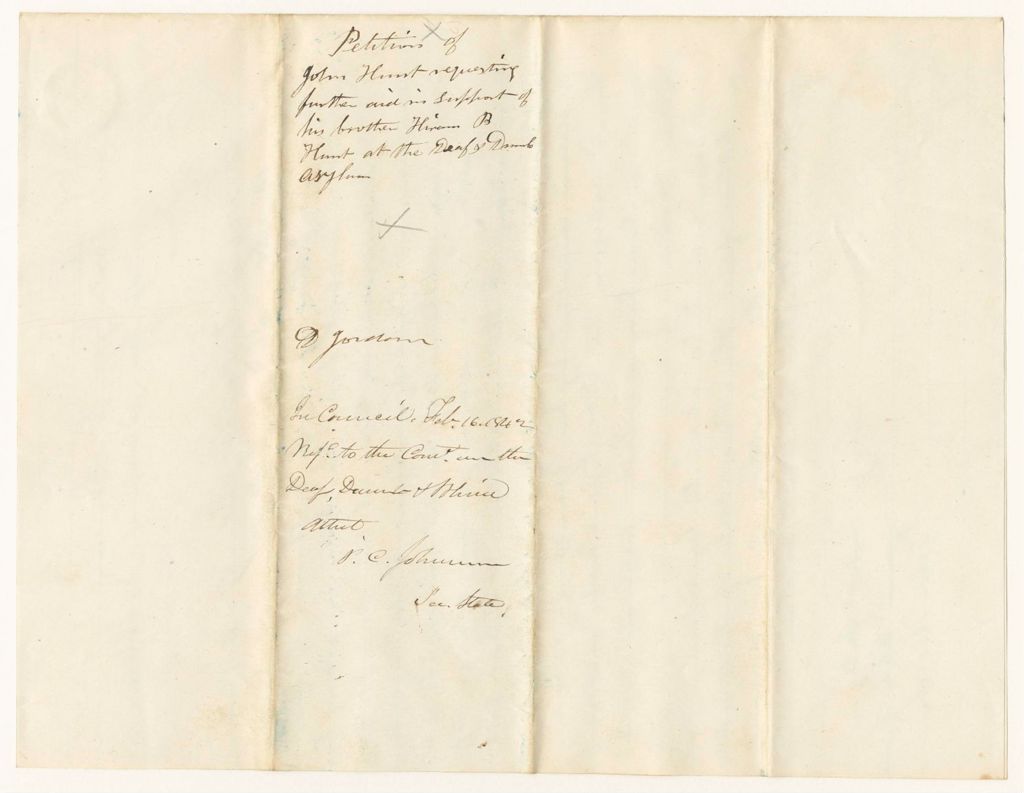 Petition of
John Hunt requesting
further aid in support of
his brother Hiram B
Hunt at the Deaf & Dumb
Asylum
D Jordan
In Council, Feb. 16. 1842
Refd. to the Comt. on the
Deaf, Dumb & Blind
Attest
P. C. Johnson
Sec. State,